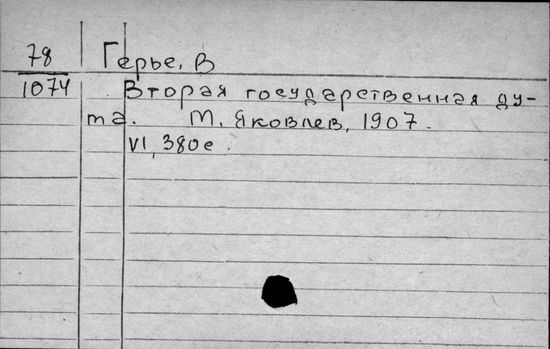 78 Герье, В
1074 Вторая государственная ду-
ma. М. Яковлев, 1907.
VI, 380 с.